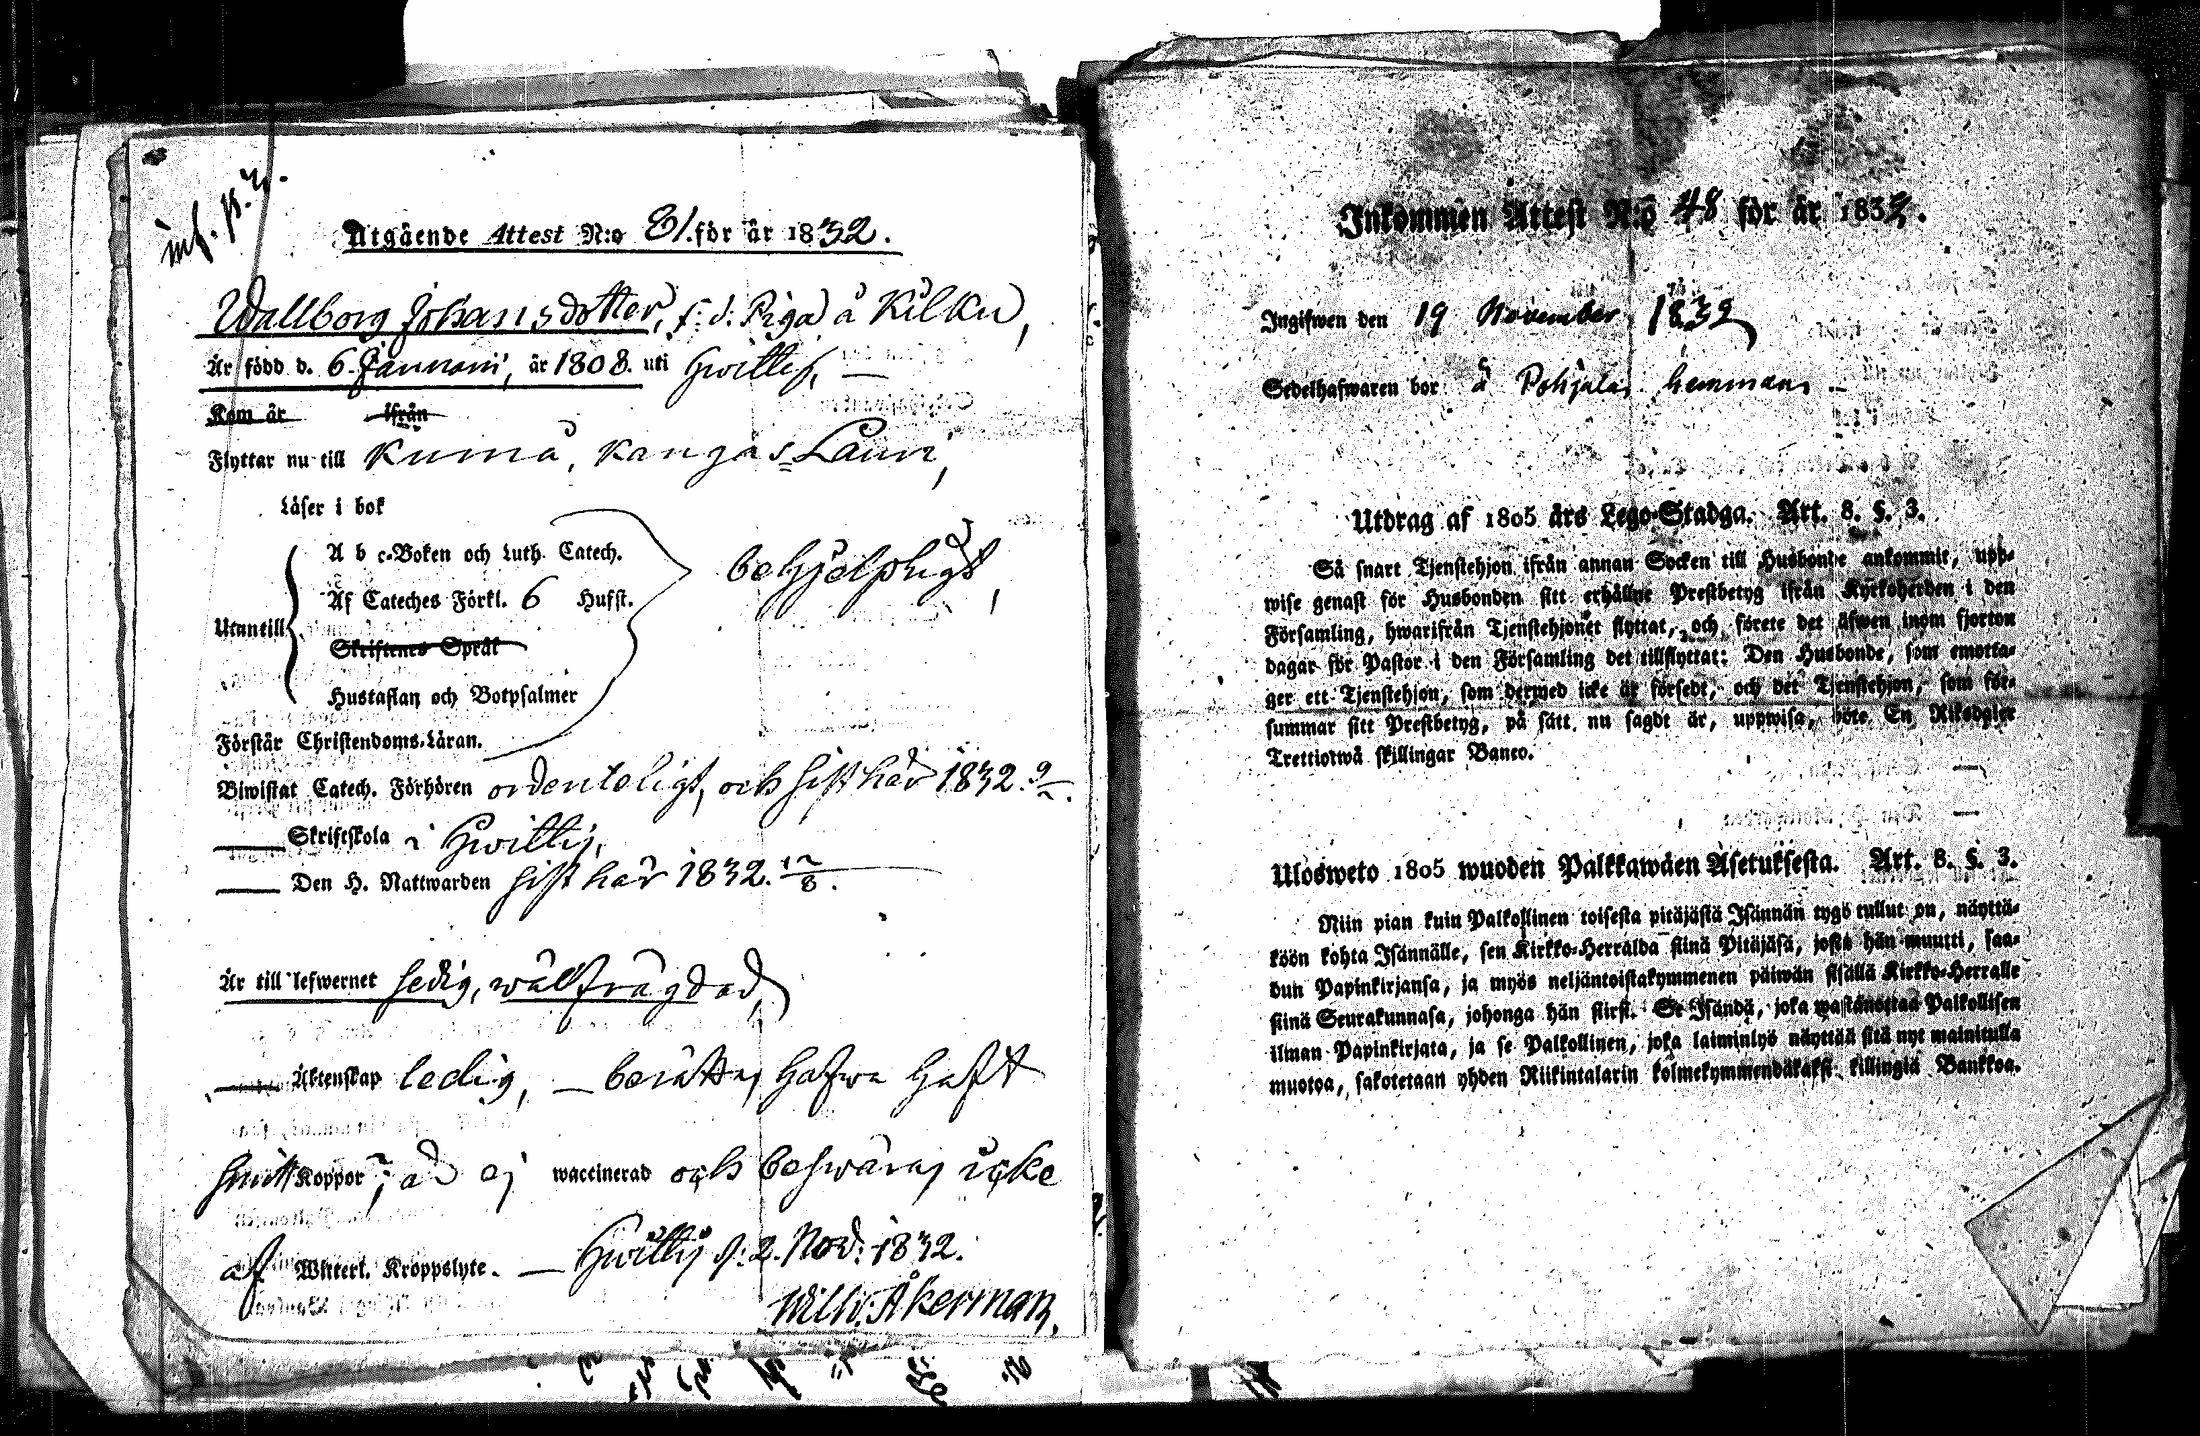 inf. p. 3.
Utgående Attest N:o 81. för år 1832.
Wallborg Johansdotter, f: d: Piga å Kilku,
Är född d. 6. Januarii, år 1808. uti Hwittis, —
Kom år ifrån
Flyttar nu till Kumå, Kangas-Lauri,
Läser i bok
A b c-Boken och Luth. Catech.
behjelpligt,
Af Cateches Förkl. 6 Hufst.
Utantill
Skriftenes Språk
Hustaflan och Botpsalmer
Förstår Christendoms-Läran.
Biwistat Catech. Förhören ordenteligt, och sist här 1832.
— Skriftskola i Hwittis,
— Den H. Nattwarden sist här 1832. 12/8.
Är till lefwernet sedig, wälfrägdad,
— Äktenskap ledig, — berättas hafwa haft
Koppor, ej waccinerad och beswäras icke
af Witterl. Kroppslyte. — Hwittis d. 2. Nov: 1832.
Wilh. Åkerman.
Inkommen Attest N:o 48 för år 1832.
Ingifwen den 19 November 1832
Sedelhafwaren bor å Pohjala hemman —
Utdrag af 1805 års Lego-Stadga. Art. 8. §. 3.
Så snart Tjenstehjon ifrån annan Socken till Husbonde ankommit, upp-
wise genast för Husbonden sitt erhållne Prestbetyg ifrån Kyrkoherden i den
Församling, hwarifrån Tjenstehjonet flyttat, och förete det äfwen inom fjorton
dagar för Pastor i den Församling det tillflyttat: Den Husbonde, som emotta-
ger ett Tjenstehjon, som dermed icke är försedt, och det Tjenstehjon, som för-
summar sitt Prestbetyg, på sätt nu sagdt är, uppwisa, böte En Riksdaler
Trettiotwå skillingar Banco.
Ulosweto 1805 wuoden Palkkawäen Asetuksesta. Art. 8. §. 3.
Niin pian kuin Palkollinen toisesta pitäjästä Isännän tygö tullut on, näyttä-
köön kohta Isännälle, sen Kirkko-Herralda siinä Pitäjäsä, josta hän muutti, saa-
dun Papinkirjansa, ja myös neljäntoistakymmenen päiwän sisällä Kirkko-Herralle
siinä Seurakunnasa, johonga hän siirsi. Se Isändä, joka wastanottaa Palkollisen
ilman Papinkirjata, ja se Palkollinen, joka laiminlyö näyttää sitä nyt mainitulla
muotoa, sakotetaan yhden Riikintalarin kolmekymmendäkaksi killingiä Bankkoa.